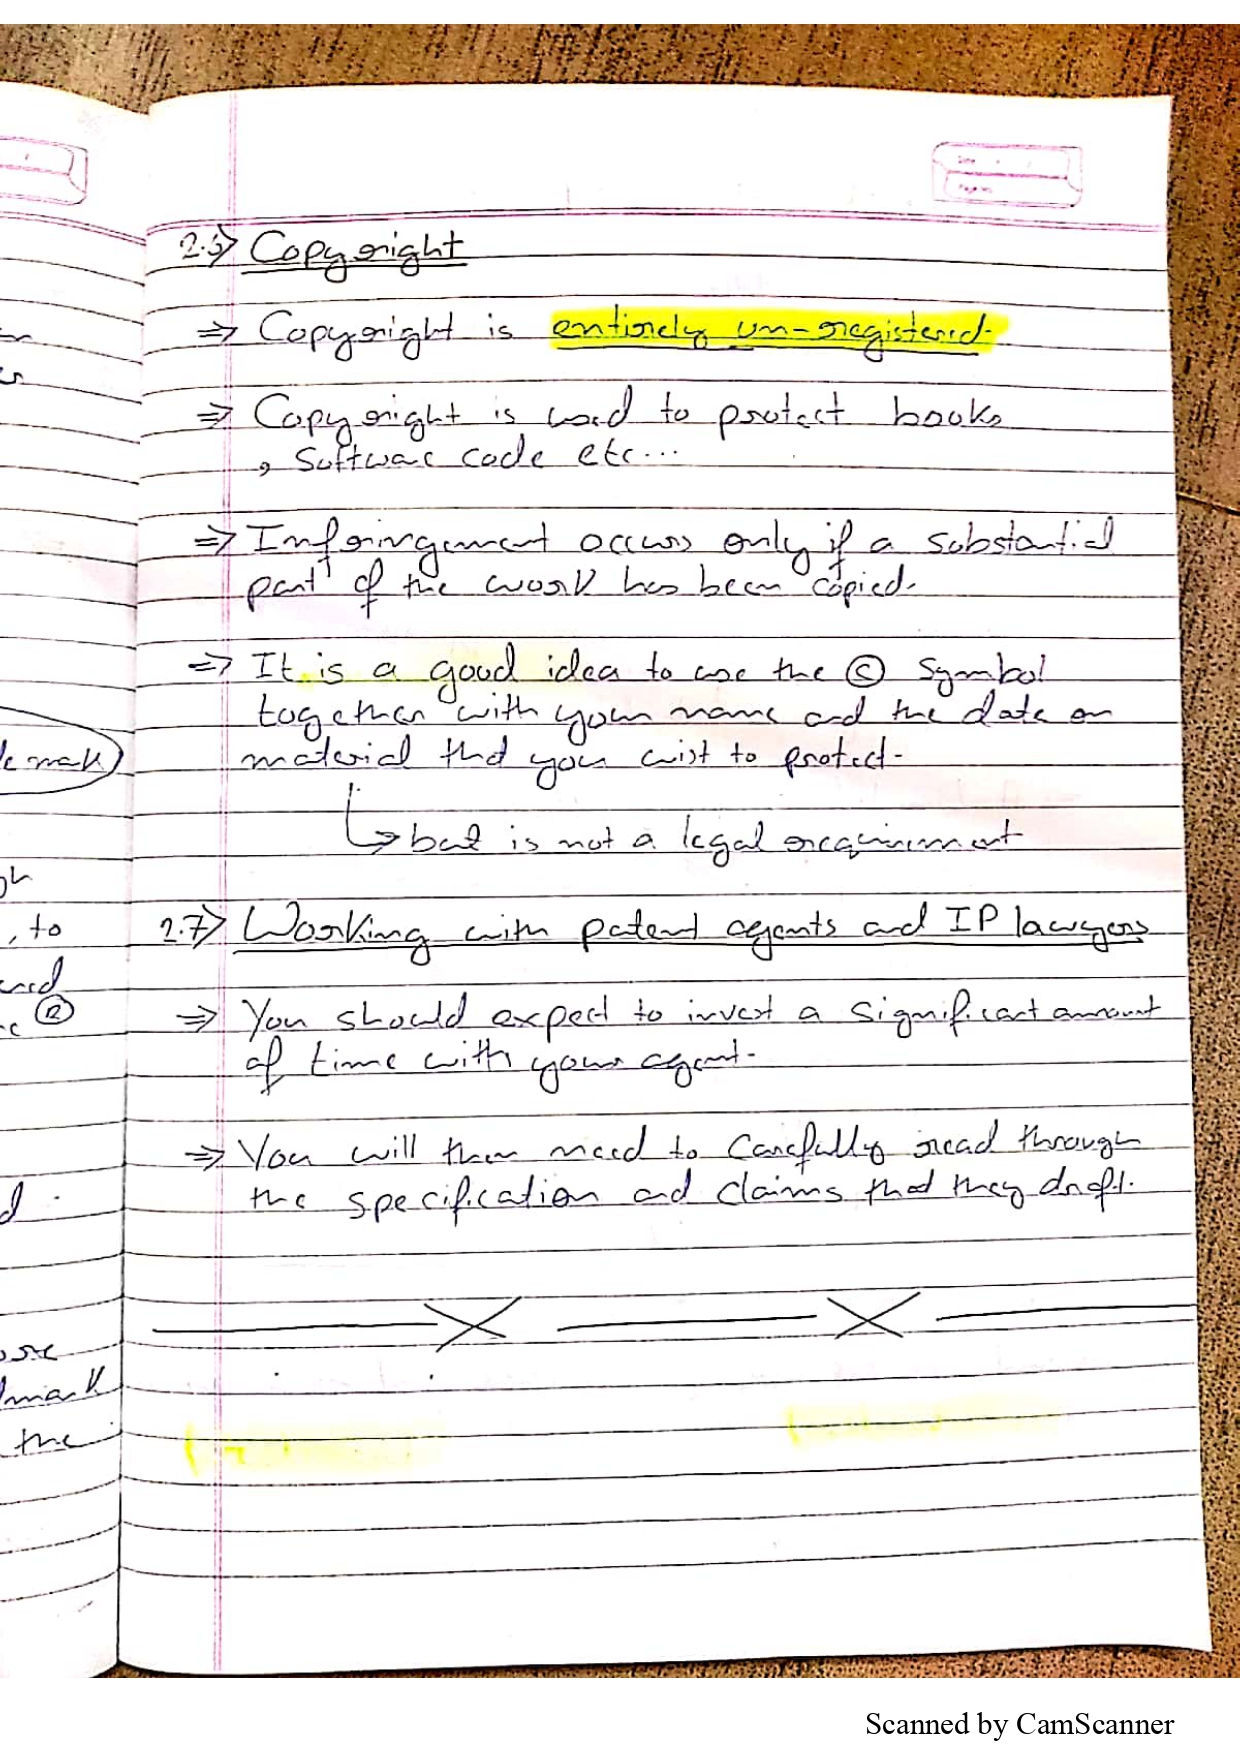 Copyright
⇒ Copyright is entirely un-registered.
⇒ Copyright is used to protect books
, Software code etc...
⇒ Infringement occurs only if a substantial
part of the work has been copied.
⇒ It is a good idea to use the © symbol
together with your name and the date on
material that you wist to protect.
↳ but is not a legal requirement
2.7) Working with patent agents and IP lawyers
⇒ You should expect to invest a significant amount
of time with your agent.
⇒ You will then need to carefully read through
the specification and claims that they draft.
mark)
, to
®
mark
the
Scanned by CamScanner